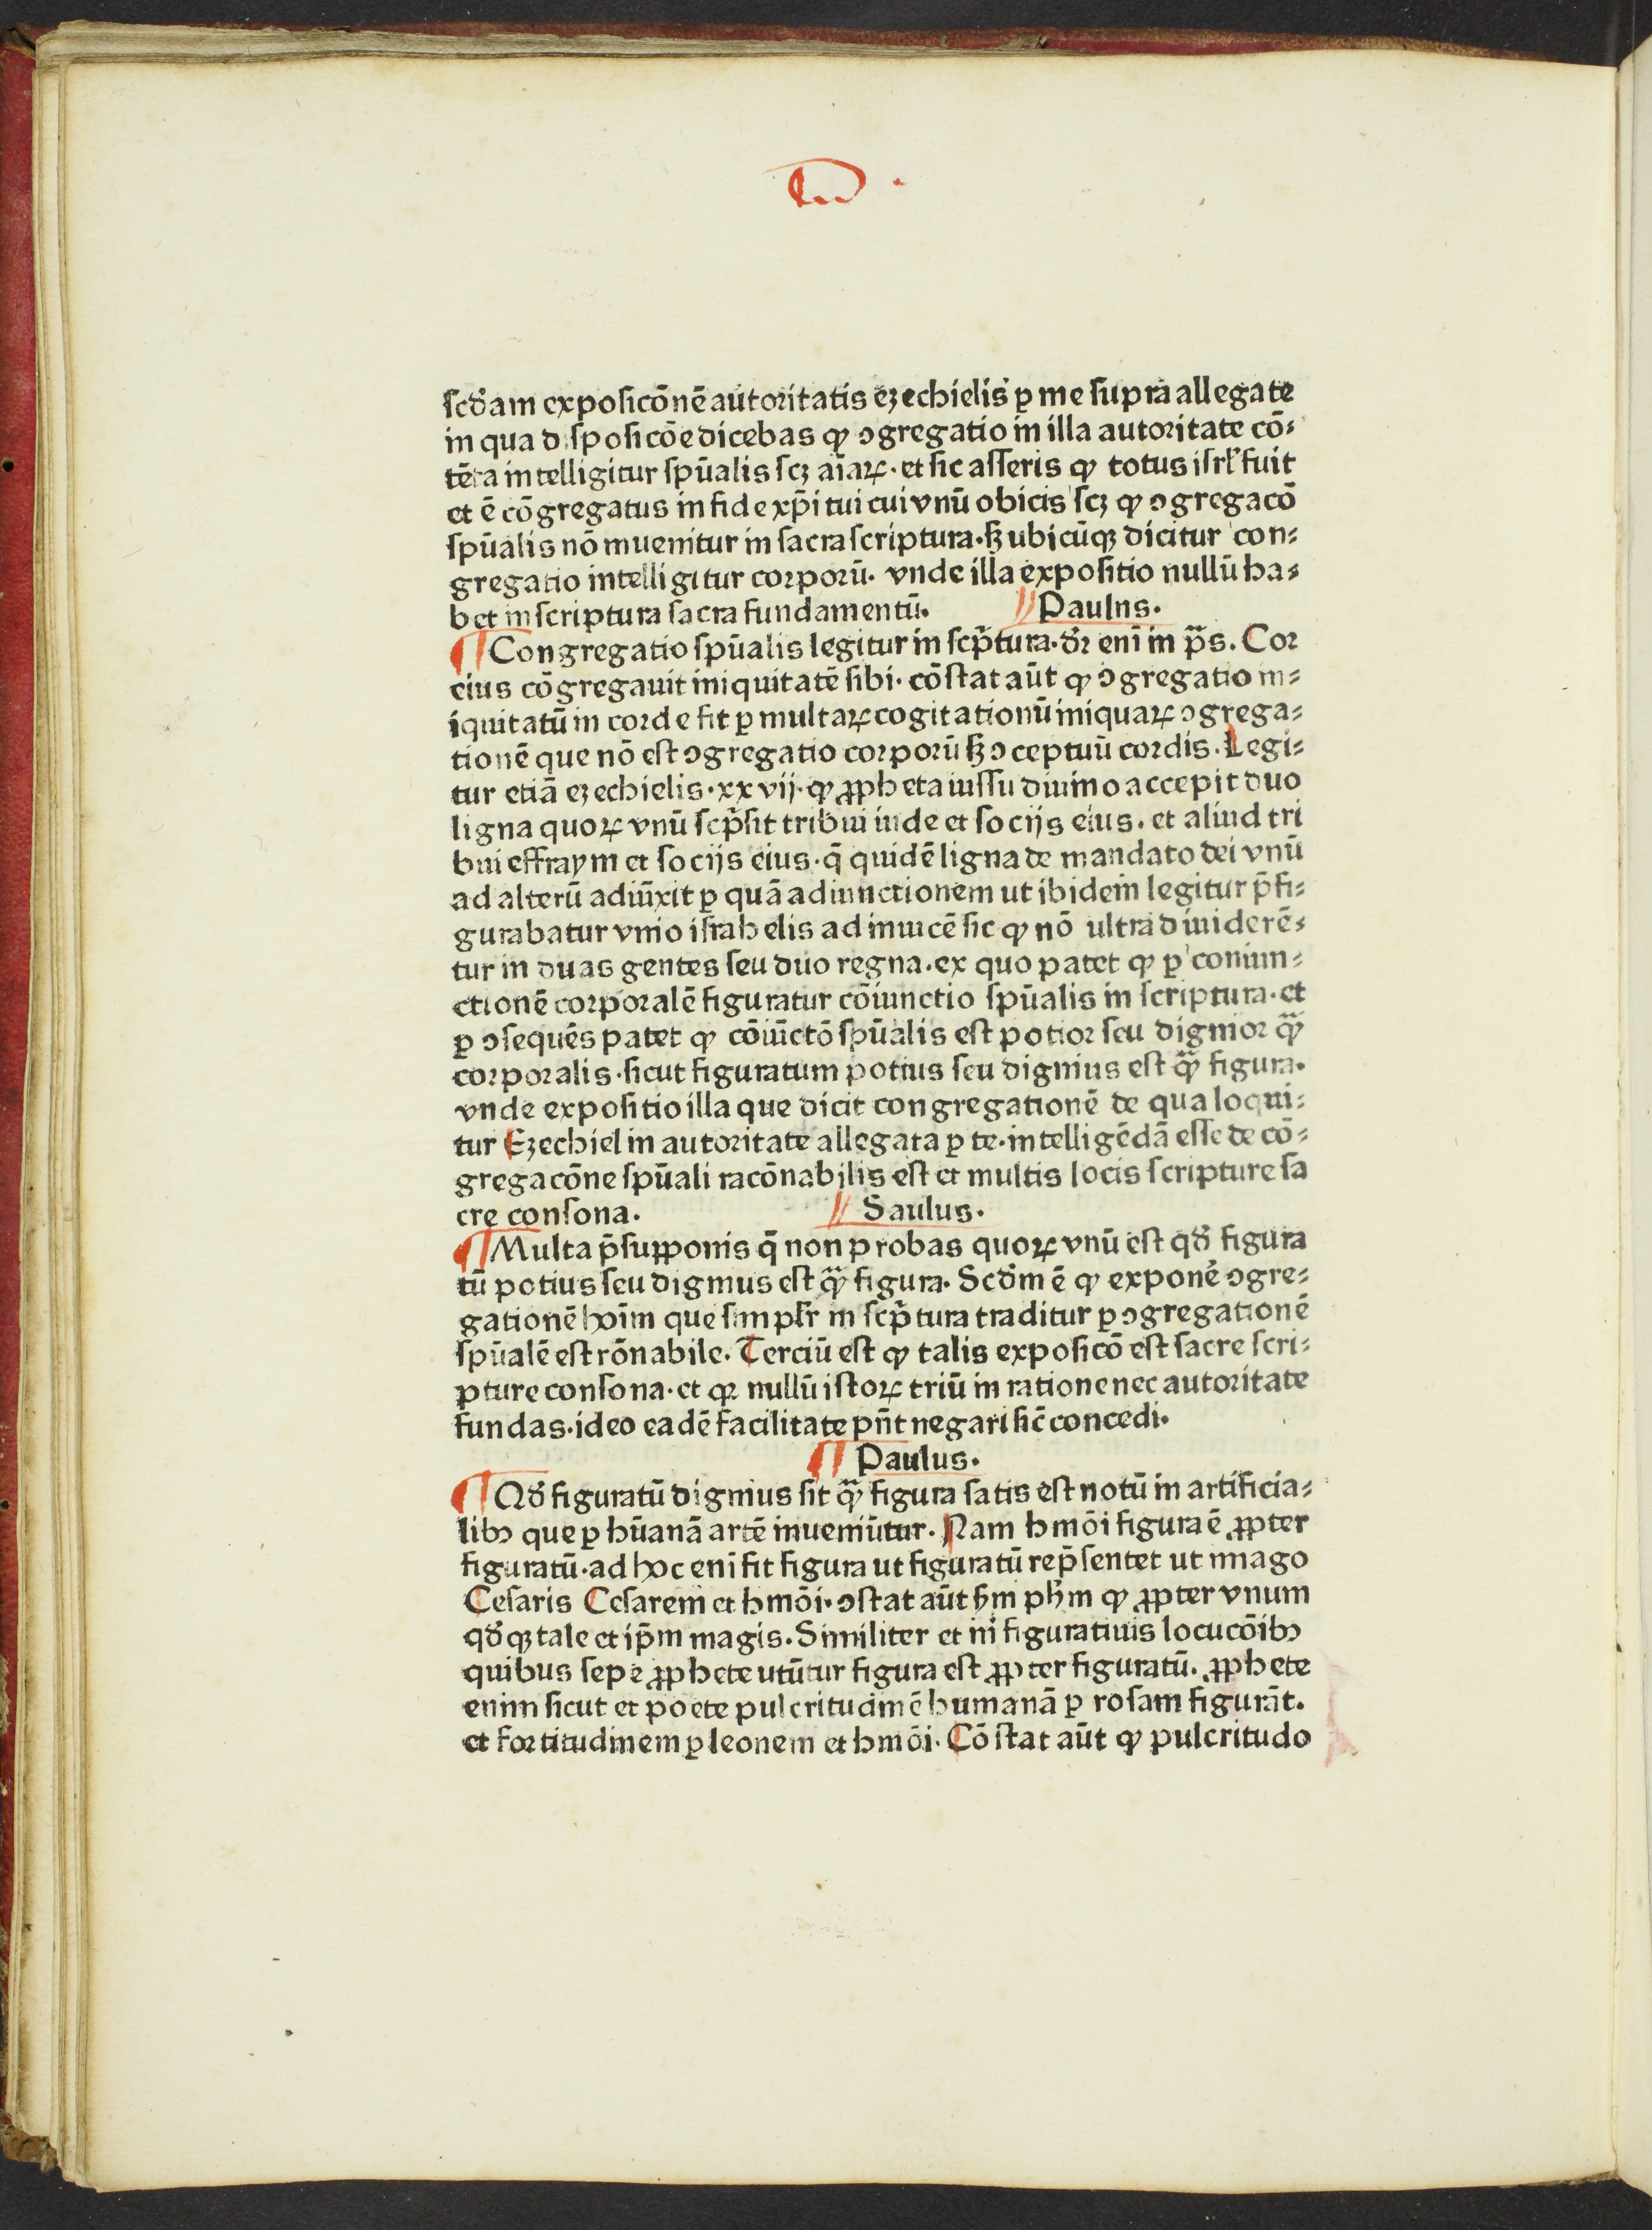 scd̄am exposicōnē autoritatis eȝechielis ꝑ me supra allegate
in qua disposicōe dicebas ꝙ ↄgregatio in illa autoritate cō⸗
tēta intelligitur spūalis scȝ aīaꝝ · et sic asseris ꝙ totus isrl̄ fuit
et ē cōgregatus in fide xp̄i tui cui vnū obicis scȝ ꝙ ↄgregacō
spūalis nō inuenitur in sacra scriptura · sꝫ ubicūqꝫ dicitur con⸗
gregatio intelligitur corporū · vnde illa expositio nullū ha⸗
bet in scriptura sacra fundamentū. Paulns.
¶ Congregatio spūalis legitur in scp̄tura · dr̄ enī in p̄s. Cor
eius cōgregauit iniquitatē sibi · cōstat aūt ꝙ ↄgregatio in⸗
iquitatū in corde fit ꝑ multaꝝ cogitationū iniquaꝝ ↄgrega⸗
tionē que nō est ↄgregatio corporū sꝫ ↄceptuū cordis. Legi⸗
tur etiā eȝechielis · xxvij · ꝙ ꝓpheta iussu diuino accepit duo
ligna quoꝝ vnū scp̄sit tribui iude et socijs eius. et aliud tri
bui effraym et socijs eius · q̄ quidē ligna de mandato dei vnū
ad alterū adiūxit ꝑ quā adiunctionem ut ibidem legitur p̄fi⸗
gurabatur vnio israhelis adinuicē sic ꝙ nō ultra diuiderē⸗
tur in duas gentes seu duo regna. ex quo patet ꝙ ꝑ coniun⸗
ctionē corporalē figuratur cōiunctio spūalis in scriptura · et
ꝑ ↄsequēs patet ꝙ cōiūctō spūalis est potior seu dignior qᷓ
corporalis · sicut figuratum potius seu dignius est qᷓ figura.
vnde expositio illa que dicit congregationē de qua loqui⸗
tur Eȝechiel in autoritate allegata ꝑ te · intelligēdā esse de cō⸗
gregacōne spūali racōnabilis est et multis locis scripture sa
cre consona. Saulus.
¶ Multa p̄supponis q̄ non probas quoꝝ vnū est qd̄ figura
tū potius seu dignius est qᷓ figura. Scd̄m ē ꝙ exponē ↄgre⸗
gationē hoīm que simplr̄ in scp̄tura traditur ꝑ ↄgregationē
spūalē est rōnabile. Terciū est ꝙ talis exposicō est sacre scri⸗
pture consona · et qꝛ nullū istoꝝ triū in ratione nec autoritate
fundas · ideo eadē facilitate pn̄t negari sic̄ concedi.
¶ Paulus.
¶ Qd̄ figuratū dignius sit qᷓ figura satis est notū in artificia⸗
libꝫ que ꝑ hūanā artē inueniūtur. Nam hmōi figura ē ꝓpter
figuratū · ad hoc enī fit figura ut figuratū rep̄sentet ut imago
Cesaris Cesarem et hmōi · ↄstat aūt sm̄ phm̄ ꝙ ꝓpter vnum
qd̄qꝫ tale et ip̄m magis. Similiter et in figuratiuis locucōibꝫ
quibus sepe ꝓphete utūtur figura est ꝓpter figuratū. ꝓphete
enim sicut et poete pulcritudinē humanā ꝑ rosam figurāt.
et fortitudinem ꝑ leonem et hmōi · Cōstat aūt ꝙ pulcritudo